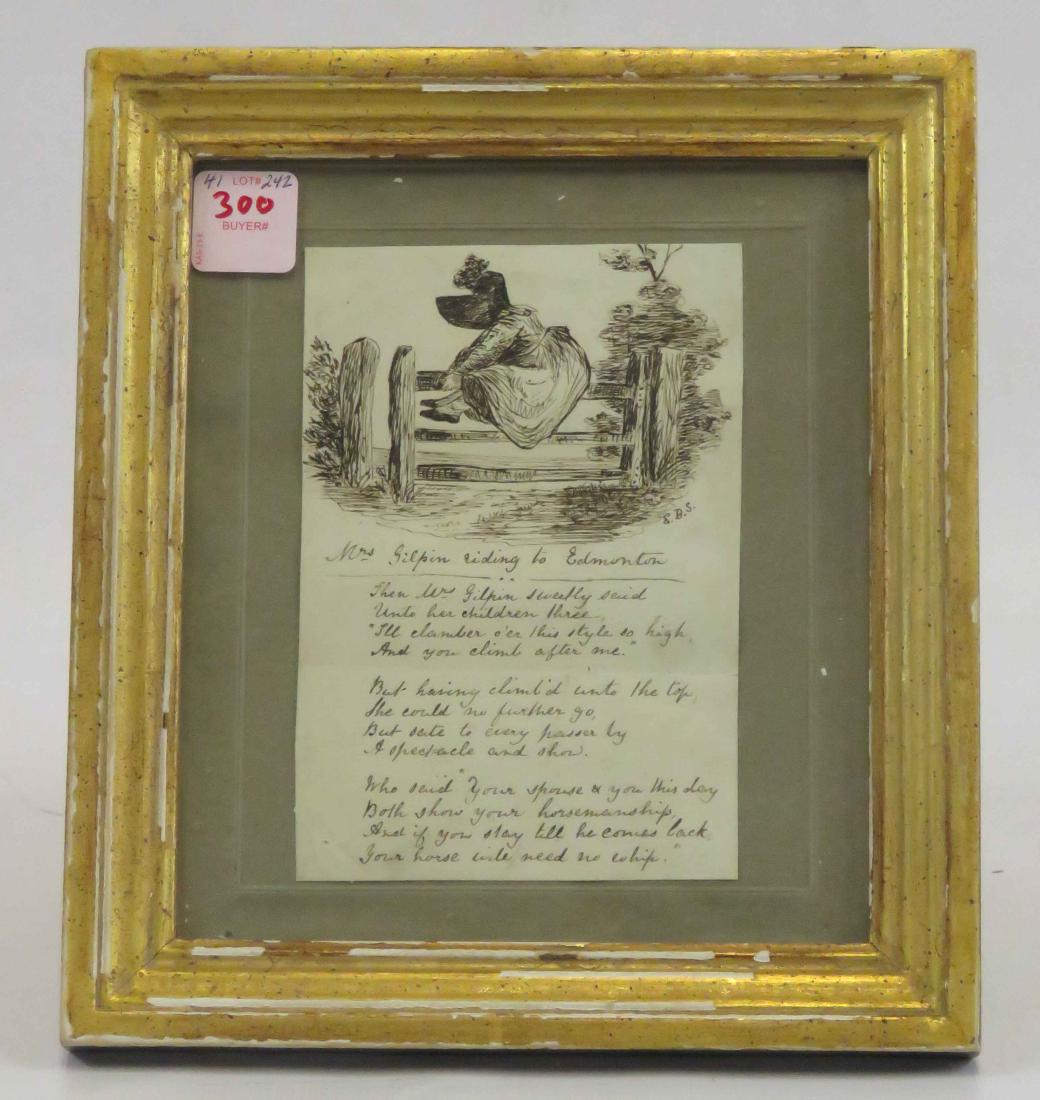 41 LOT# 242
300
BUYER#
S.B.S.
Mrs Gilpin riding to Edmonton
Then Mrs Gilpin sweetly said
Unto her children three,
"I'll clamber o'er this style so high,
And you climb after me."
But having climb'd unto the top,
She could no further go,
But sate to every passer by
A spectacle and show.
Who said "Your spouse & you this day
Both show your horsemanship,
And if you stay till he comes back,
Your horse will need no whip."